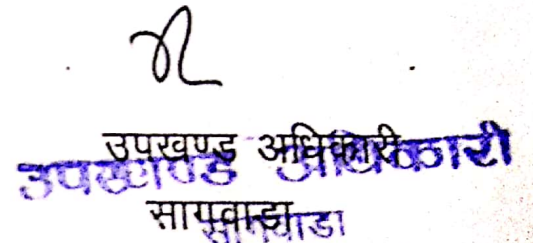 उपखण्ड अधिकारी
उपखण्ड अधिकारी
सागवाडा
सागवाडा